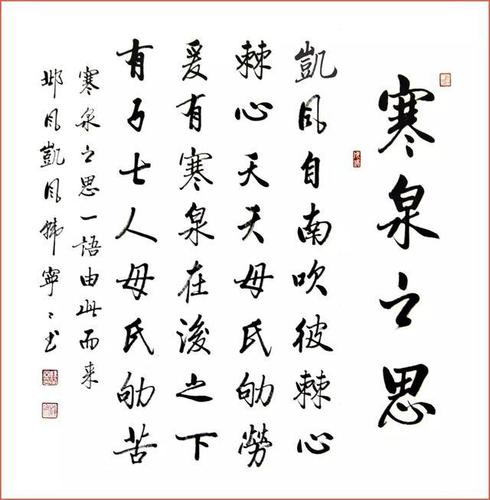 寒泉之思
凱风自南吹彼棘心
棘心夭夭母氏劬勞
爰有寒泉在浚之下
有子七人母氏劬苦
寒泉之思一語由此而来
邶风凱风韩寧〻书